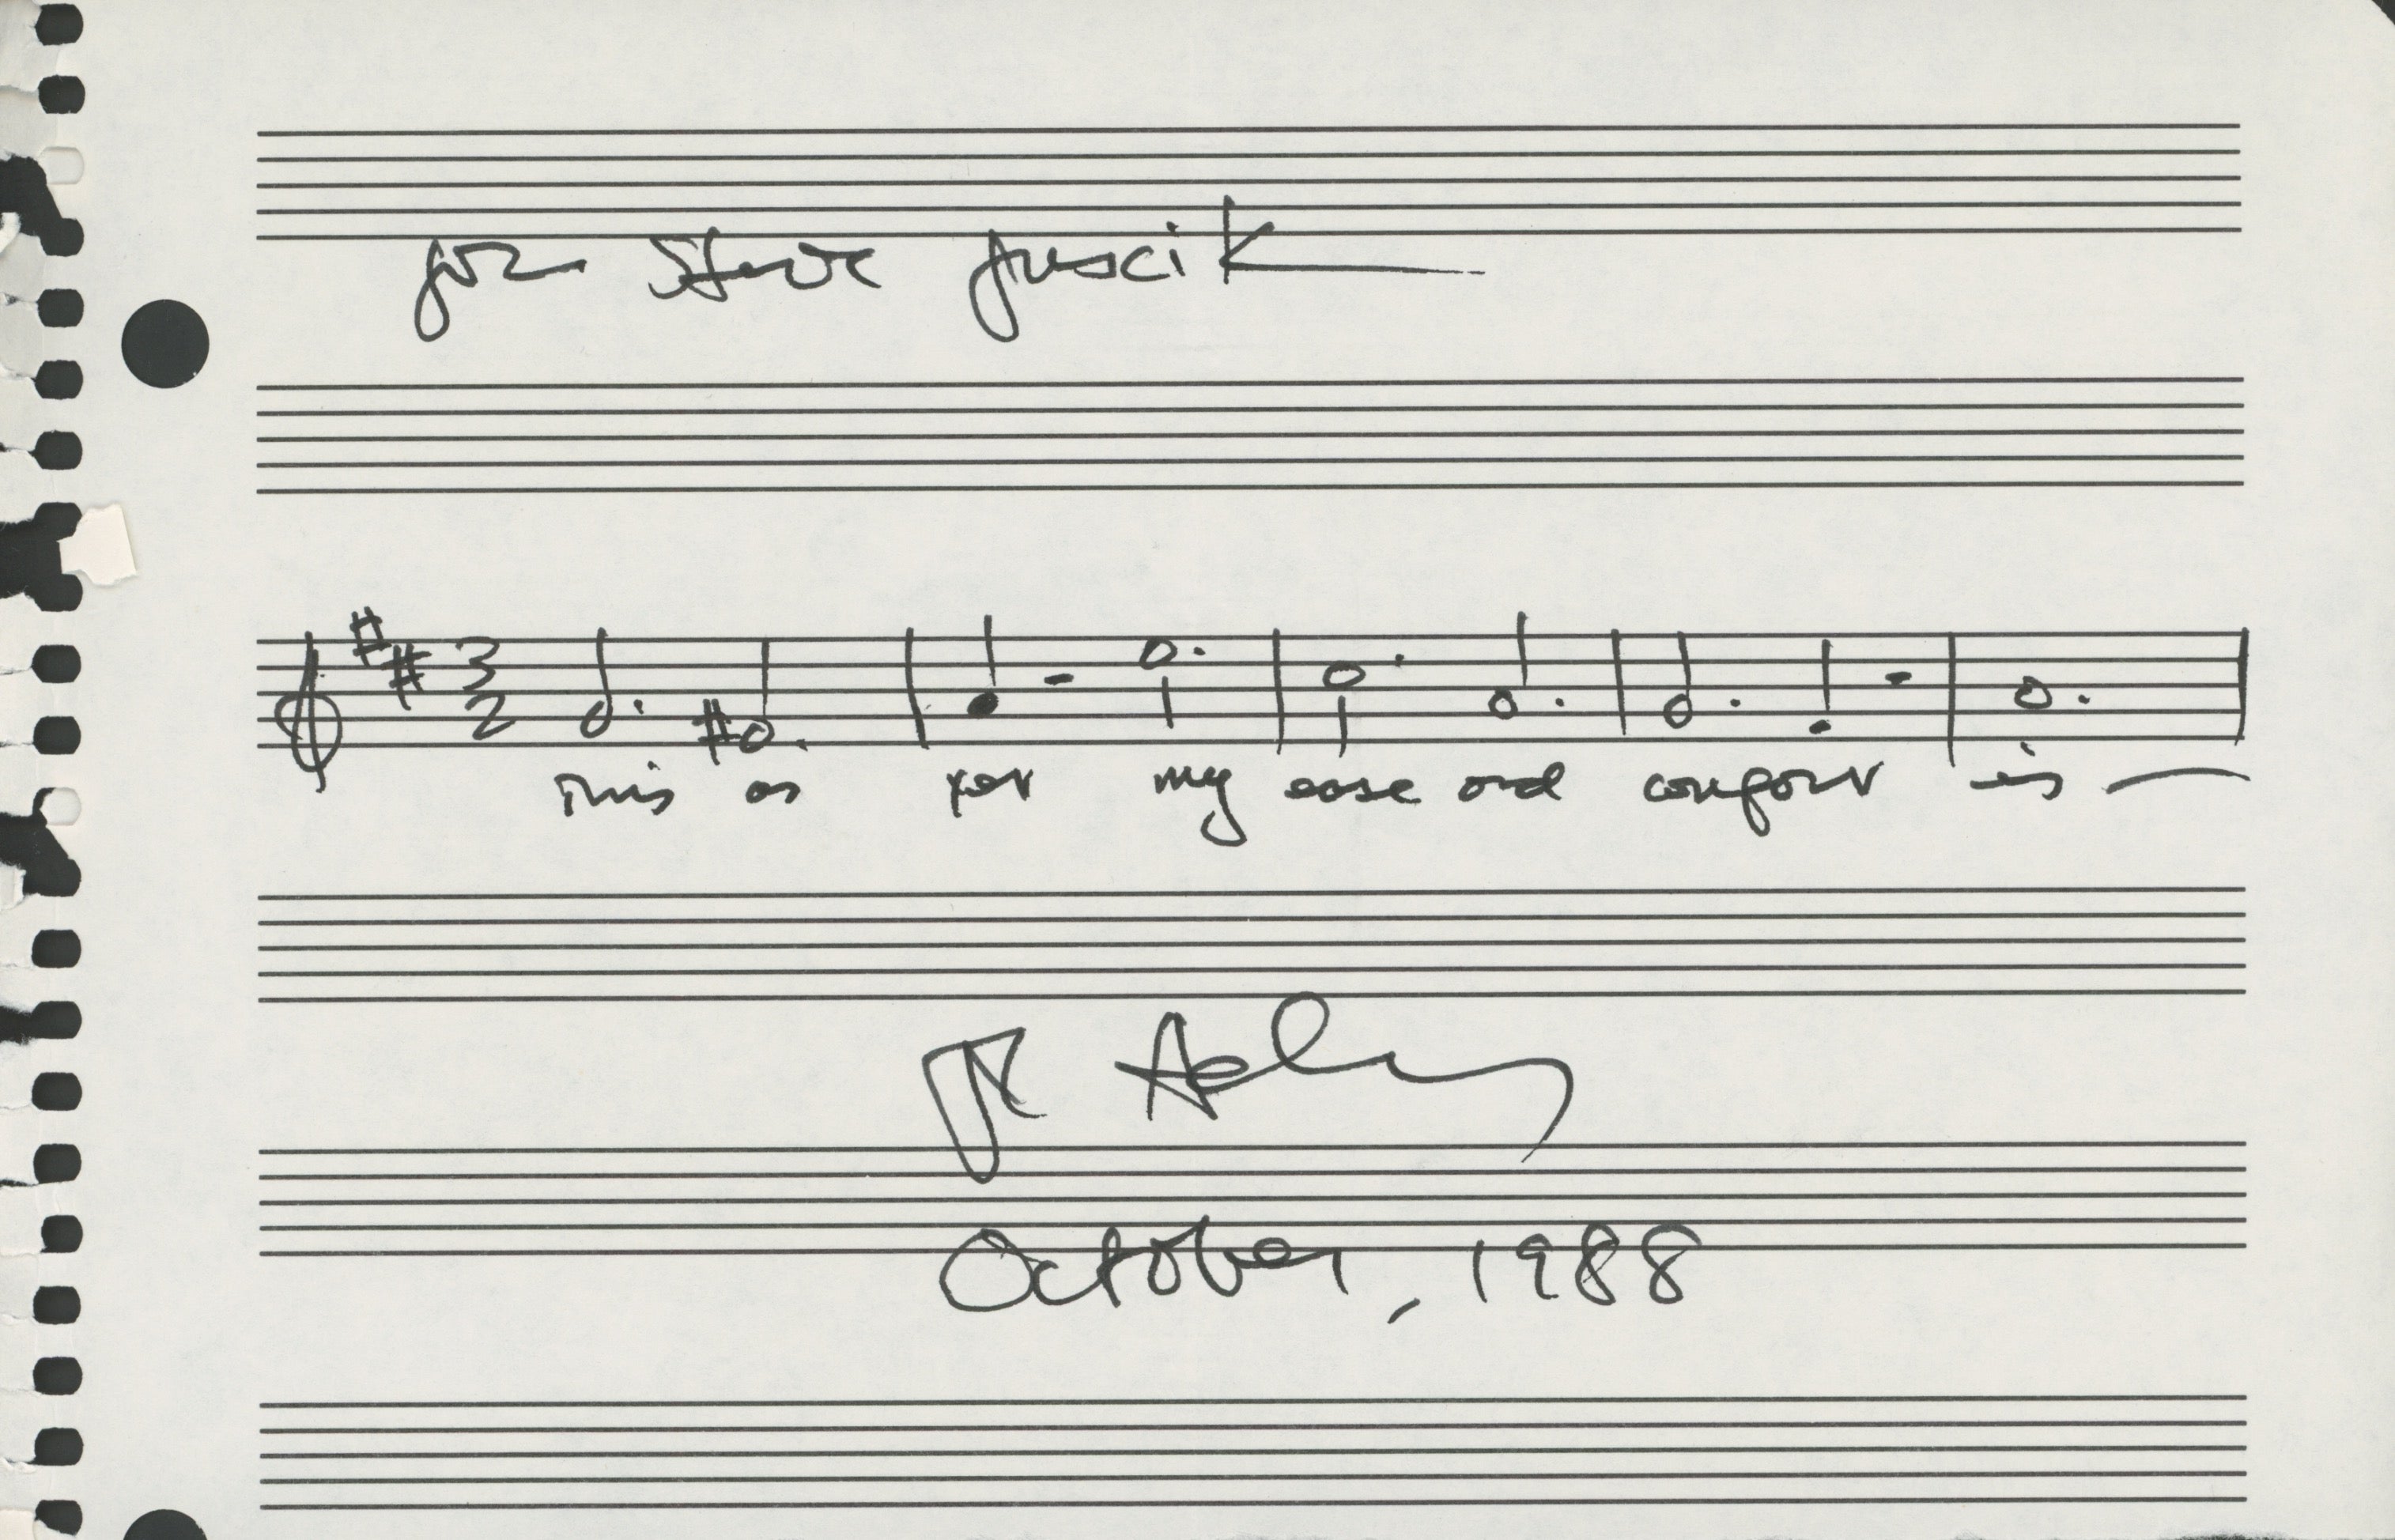 for Steve Juscik
3
2
This as yet my ease and comfort is
October, 1988